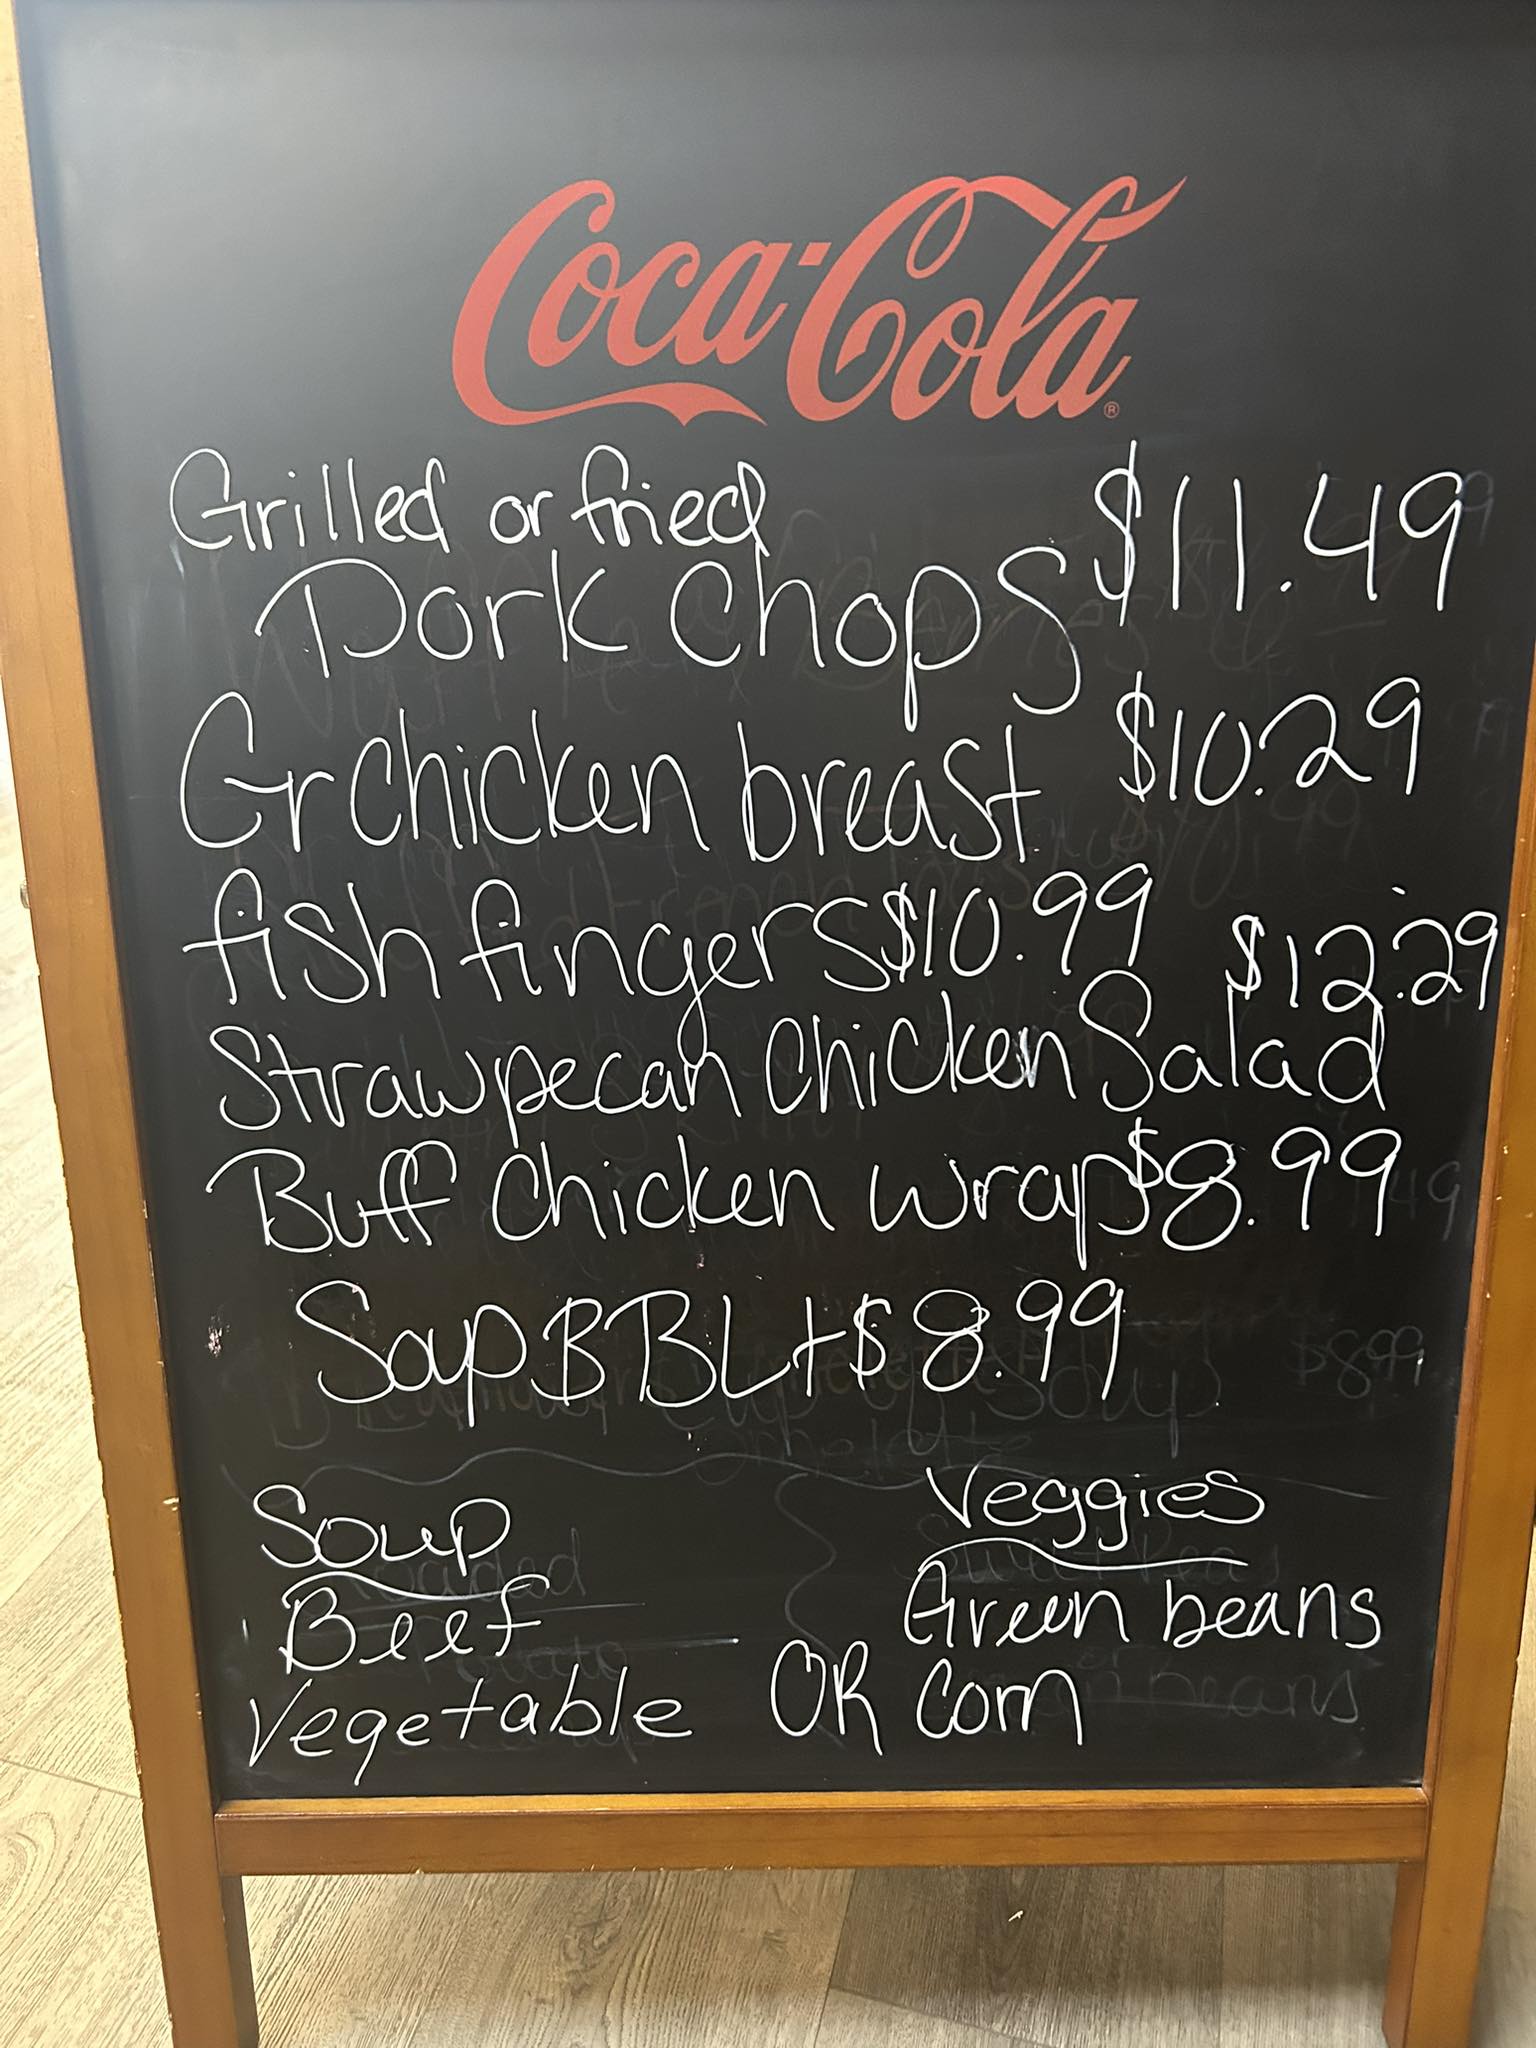 Coca-Cola
Grilled or fried
Pork Chops $11.49
Gr Chicken breast $10.29
fish fingers $10.99
$12.29
Strawpecan Chicken Salad
Buff Chicken wrap $8.99
Soup B BLt $8.99
Soup
Beef
Vegetable
Veggies
Green beans
OR Corn